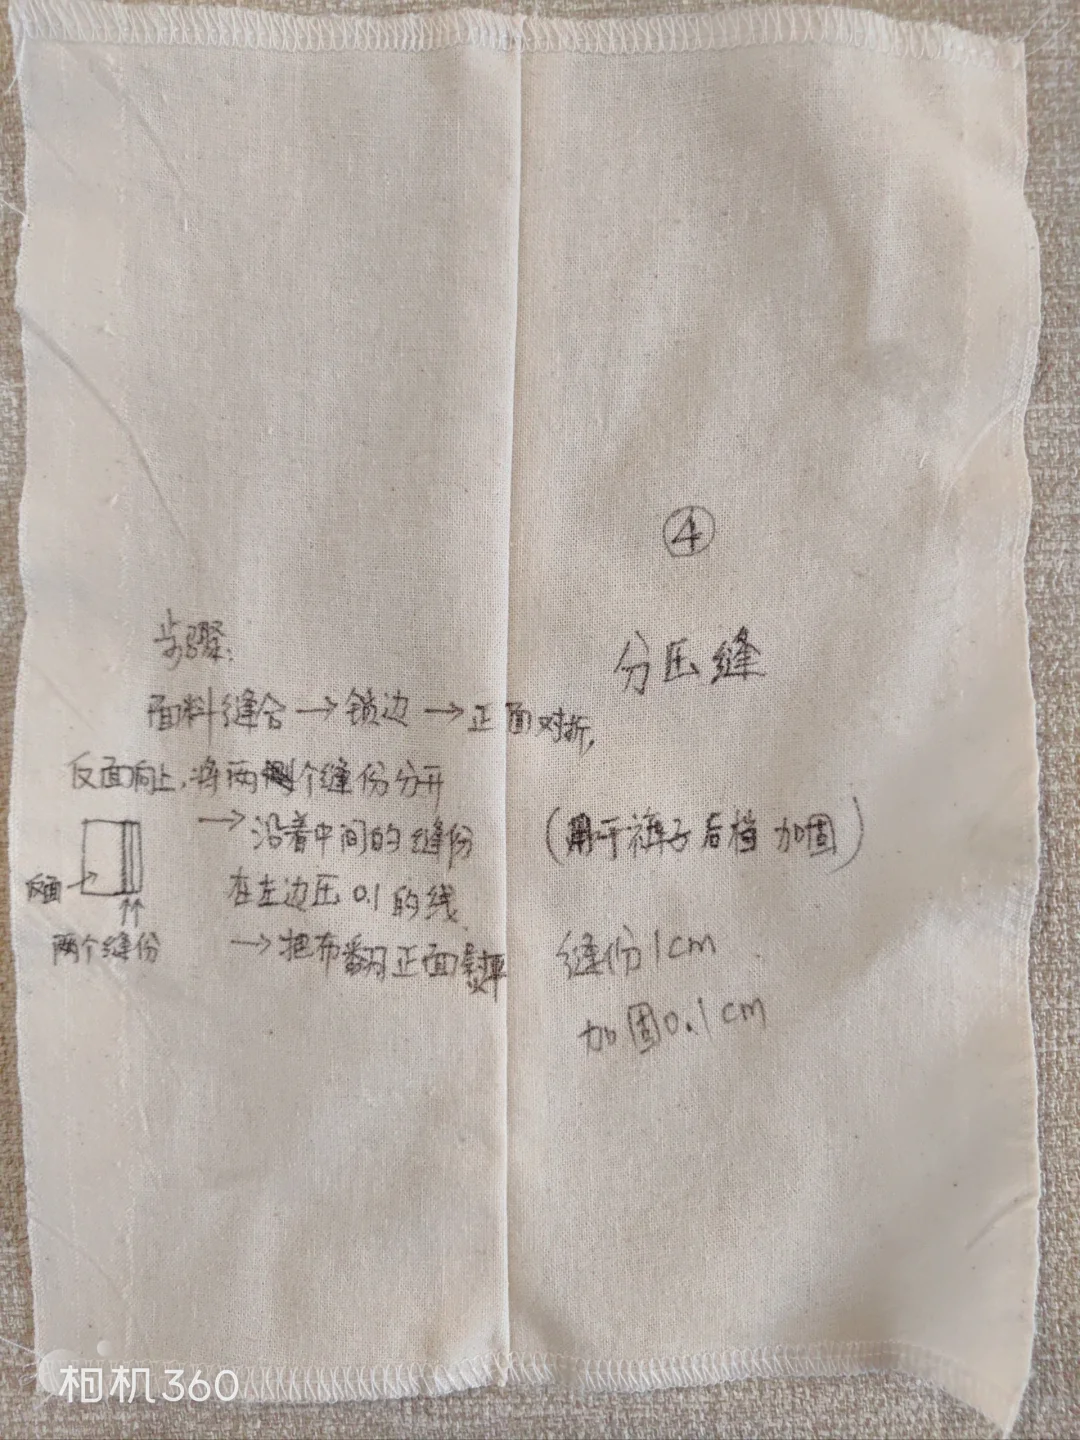 ④
分压缝
步骤:
面料缝合→锁边→正面对折,
反面向上,将两个缝份分开
→沿着中间的缝份
在左边压0.1的线
→把布翻到正面熨平
反面→
↑↑
两个缝份
(用于裤子后裆加固)
缝份1cm
加固0.1cm
相机360